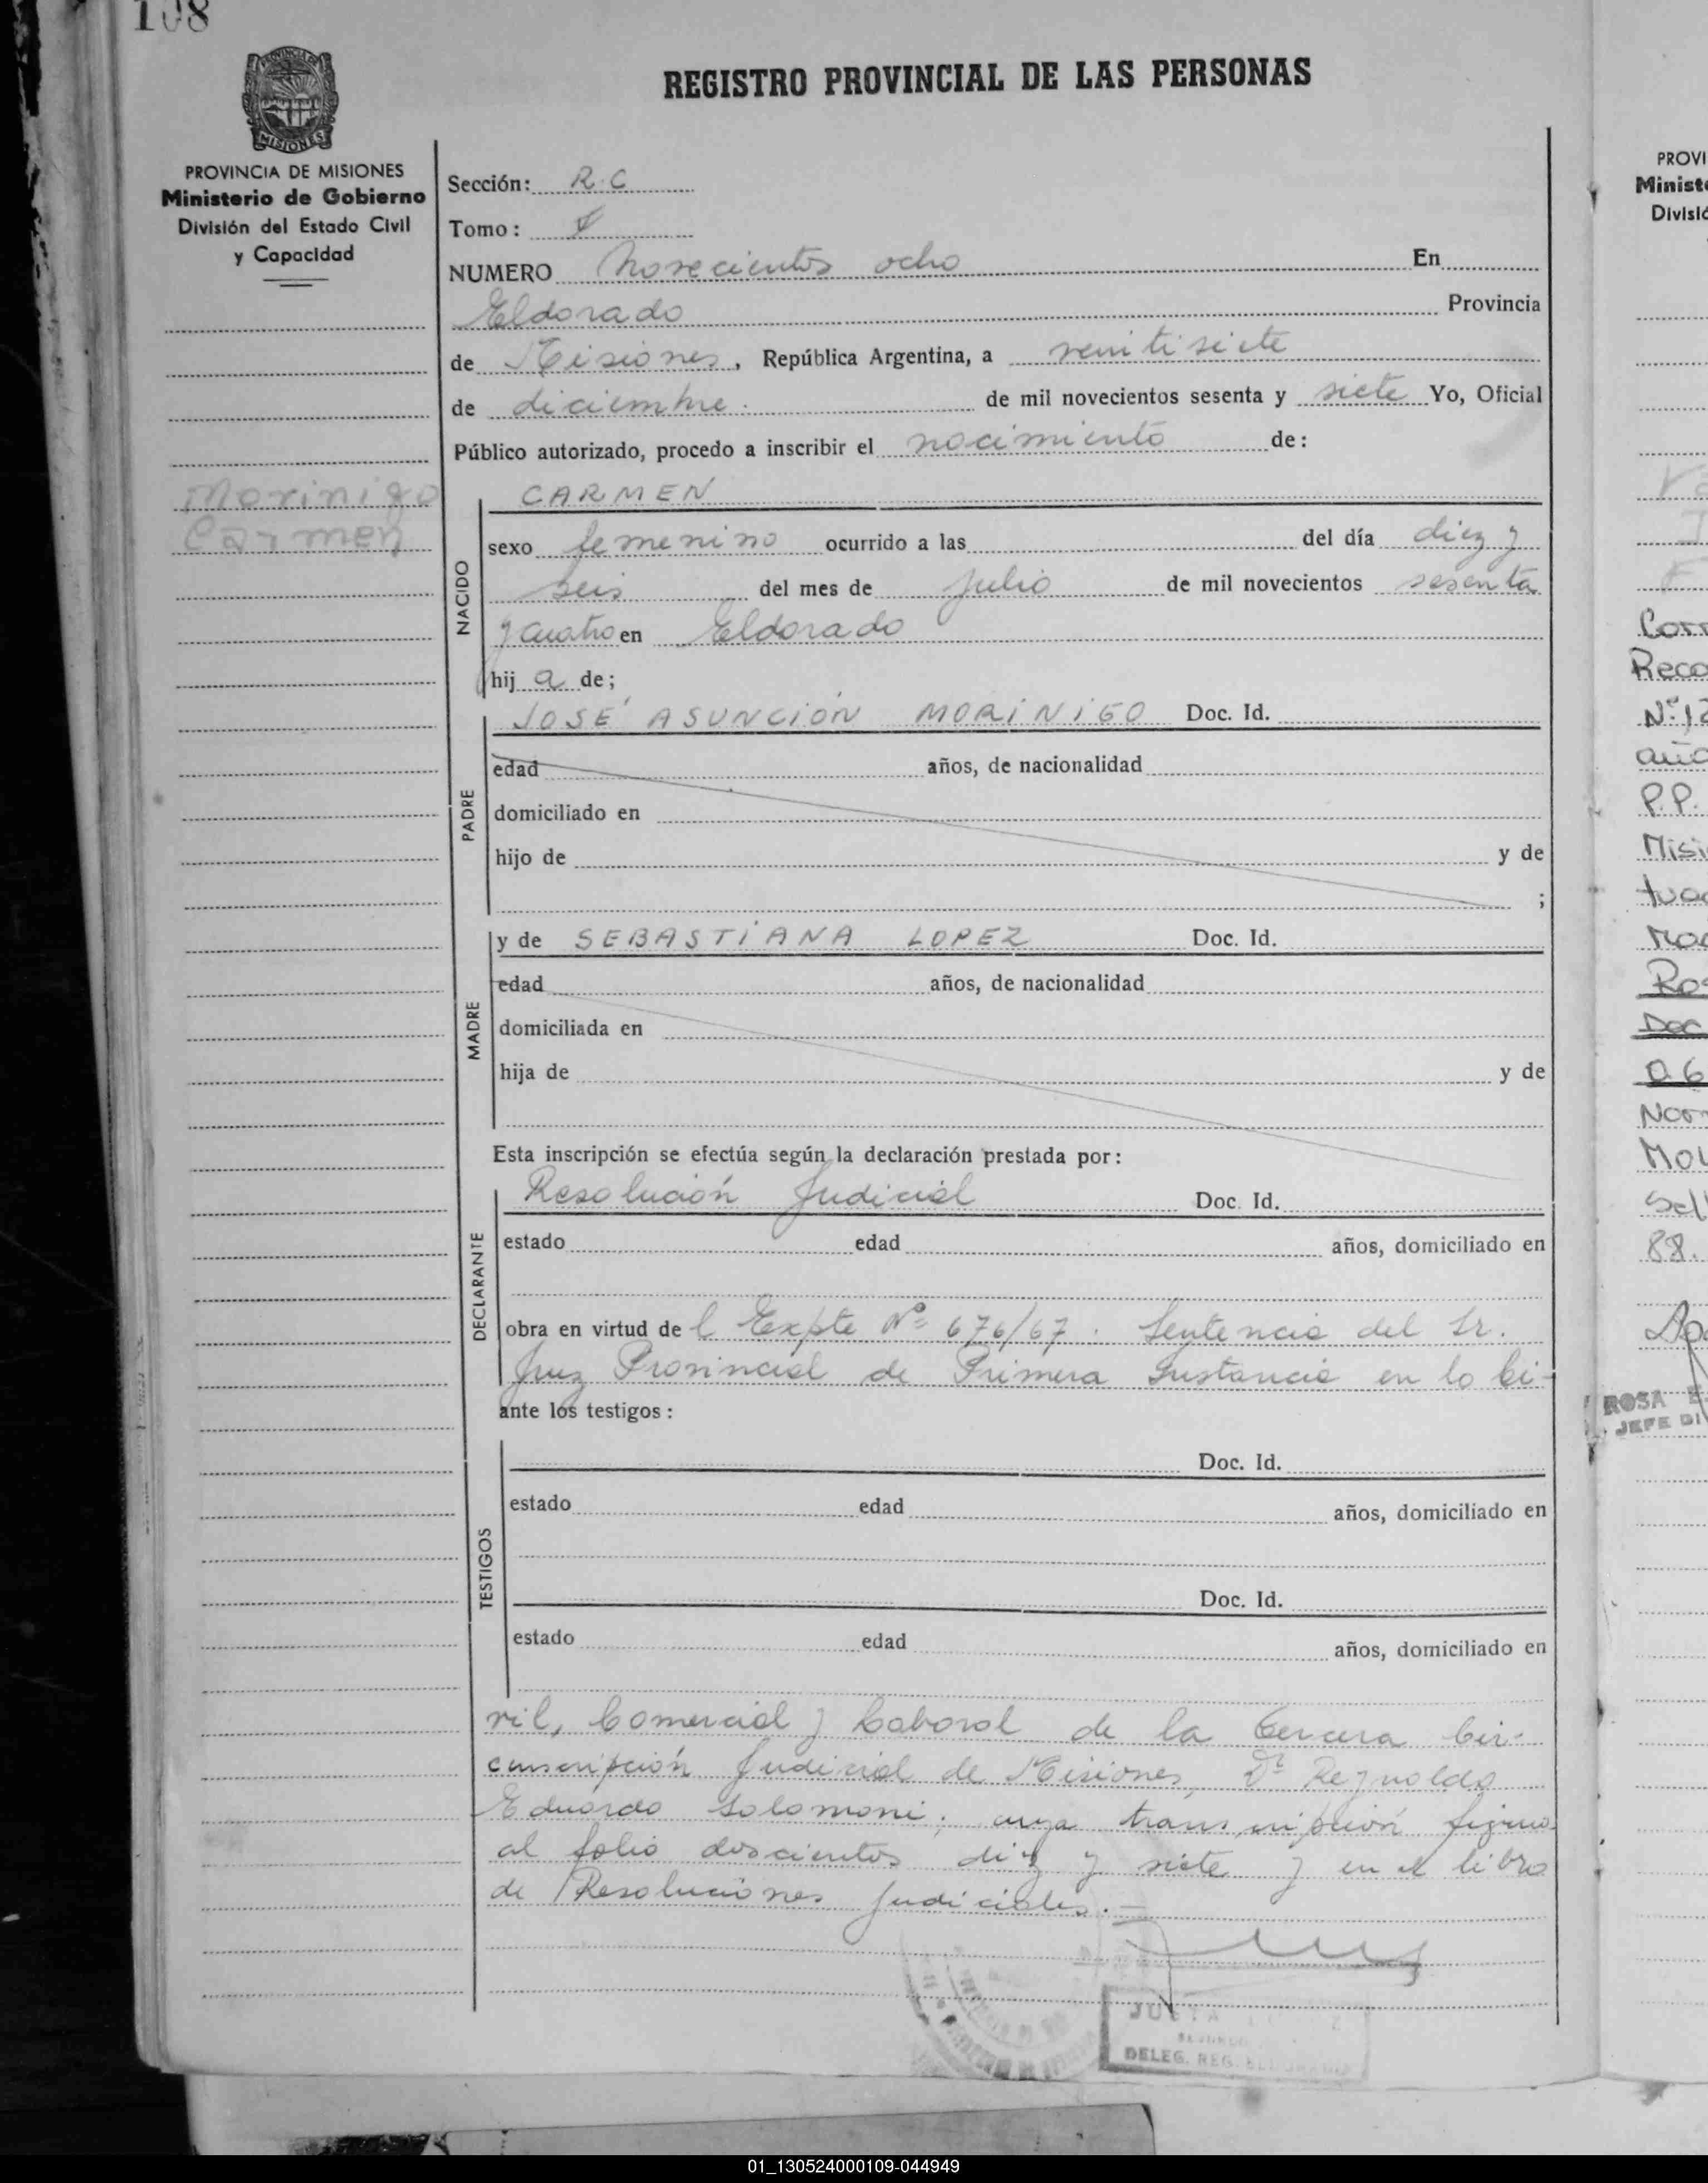 108
REGISTRO PROVINCIAL DE LAS PERSONAS
MISIONES
PROVINCIA DE MISIONES
Ministerio de Gobierno
División del Estado Civil
y Capacidad
Morinigo
Carmen
Sección: R.C
Tomo:
NUMERO Novecientos ocho En
Eldorado Provincia
de Misiones, República Argentina, a veintisiete
de diciembre de mil novecientos sesenta y siete Yo, Oficial
Público autorizado, procedo a inscribir el nacimiento de:
NACIDO
CARMEN
sexo femenino ocurrido a las del día diez y
seis del mes de julio de mil novecientos sesenta
y cuatro en Eldorado
hij a de;
PADRE
JOSÉ ASUNCIÓN MORINIGO Doc. Id.
edad años, de nacionalidad
domiciliado en
hijo de y de
;
MADRE
y de SEBASTIANA LOPEZ Doc. Id.
edad años, de nacionalidad
domiciliada en
hija de y de
Esta inscripción se efectúa según la declaración prestada por:
DECLARANTE
Resolución Judicial Doc. Id.
estado edad años, domiciliado en
obra en virtud de l Expte Nº 676/67. Sentencia del Sr.
Juez Provincial de Primera Instancia en lo Ci-
ante los testigos:
TESTIGOS
Doc. Id.
estado edad años, domiciliado en
Doc. Id.
estado edad años, domiciliado en
vil, Comercial y Laboral de la Tercera Cir-
cunscripción Judicial de Misiones, Dr. Reynaldo
Eduardo Solomoni; cuya transcripción figura
al folio doscientos diez y siete y en el libro
de Resoluciones Judiciales.=
DELEG. REG. ELDORADO
PROVI
Ministe
Divisió
Corr
Reco
P.P.
Misi
88.
ROSA E
JEFE DI
01_130524000109-044949